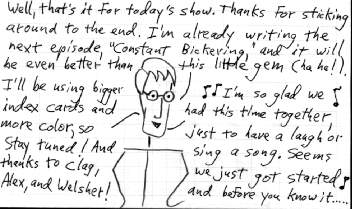 Well, that's it for today's show. Thanks for sticking
around to the end. I'm already writing the
next episode, "Constant Bickering," and it will
be even better than this little gem (ha ha!).
I'll be using bigger
index cards and
more color, so
stay tuned! And
thanks to Clag,
Alex, and Welsher!
♫ I'm so glad we ♪
had this time together,
just to have a laugh or
sing a song. Seems
we just got started ♪
and before you know it.....